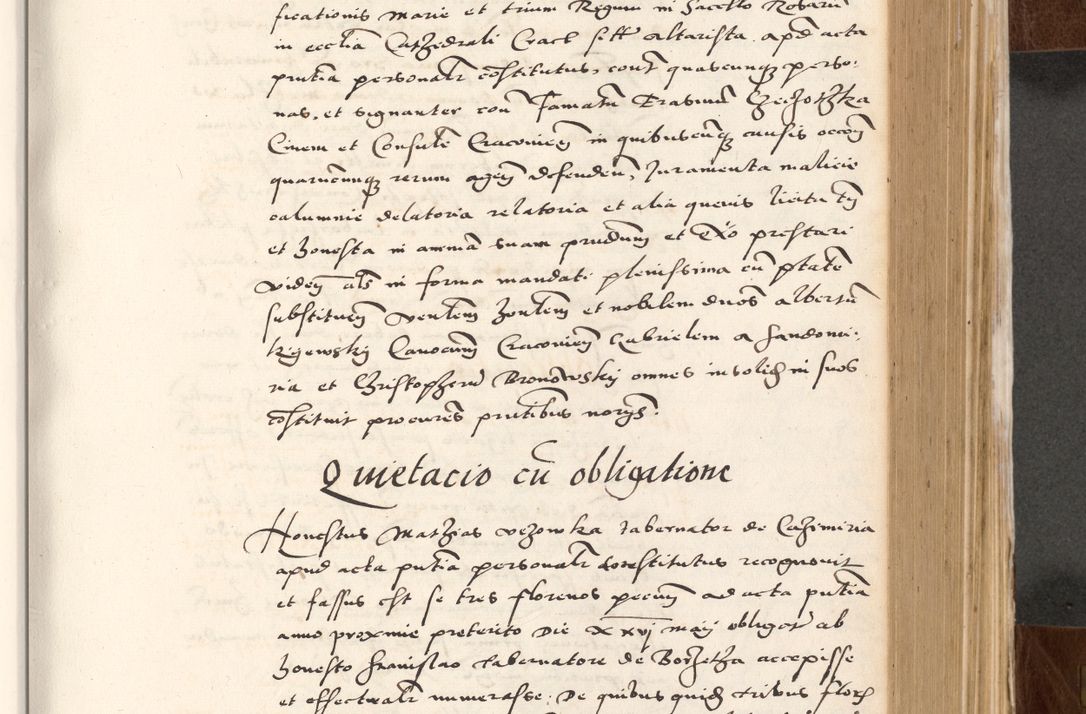 ficationis Marie et trium Regum in sacello Rosarii
in ecclia Cathedrali Crac sitt altarista apd acta
pntia personalr cōstitutus, cont quascunq perso:
nas, et signanter con Famatū Erasmū
Civem et Consulē Cracovieñ in quibuscūq causis occoñ
quarūcunq rerum ageñ defendeñ, Juramenta malicie
calumnie delatoria relatoria et alia quevis licita tñ
et honesta in animā suam prndum et Exo prestari
videñ als in forma mandati plenissima cū ptate
substitueñ venlem honlem et nobilem dnos Albertū
Kijewskij Canocum Cracovieñ Gabrielem a Sandomi:
ria et Christopherū Bronowskij omnes insolid in suos
cōstituit procures pntibus norys.
Quietacio cū obligatione
Honestus Mathias vezowka tabernator de Cazimiria
apud acta pntia personalr constitutus recognovit
et fassus est se tres florenos pecuñ ad acta pntia
anno proxime preterito die xxvj maij obligat ab
honesto Stanislao tabernatore de accepisse
et effectualr numerasse: De quibus quid tribus flors